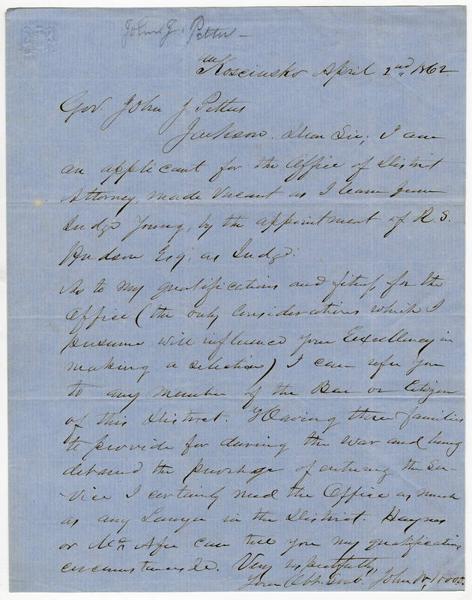 John J. Pettus
Kosciusko April 2nd 1862
Gov John J Pettus
Jackson. Dear Sir; I am
an applicant for the Office of District
Attorney, made Vacant as I learn from
Judge Young, by the appointment of R. S.
Hudson Esq; as Judge.
As to my qualifications and fitness for the
Office (the only Considerations which I
presume will influence your Excellency in
making a selection) I can refer you
to any member of the Bar or Citizen
of this District. Having three families
to provide for during the war and being
debared the privilege of entering the Ser-
vice I certainly need the Office as much
as any Lawyer in the District. Haynes
or McAfee can tell you my qualifications
circumstances &c. Very respectfully
Your Obt. Servt. John W.